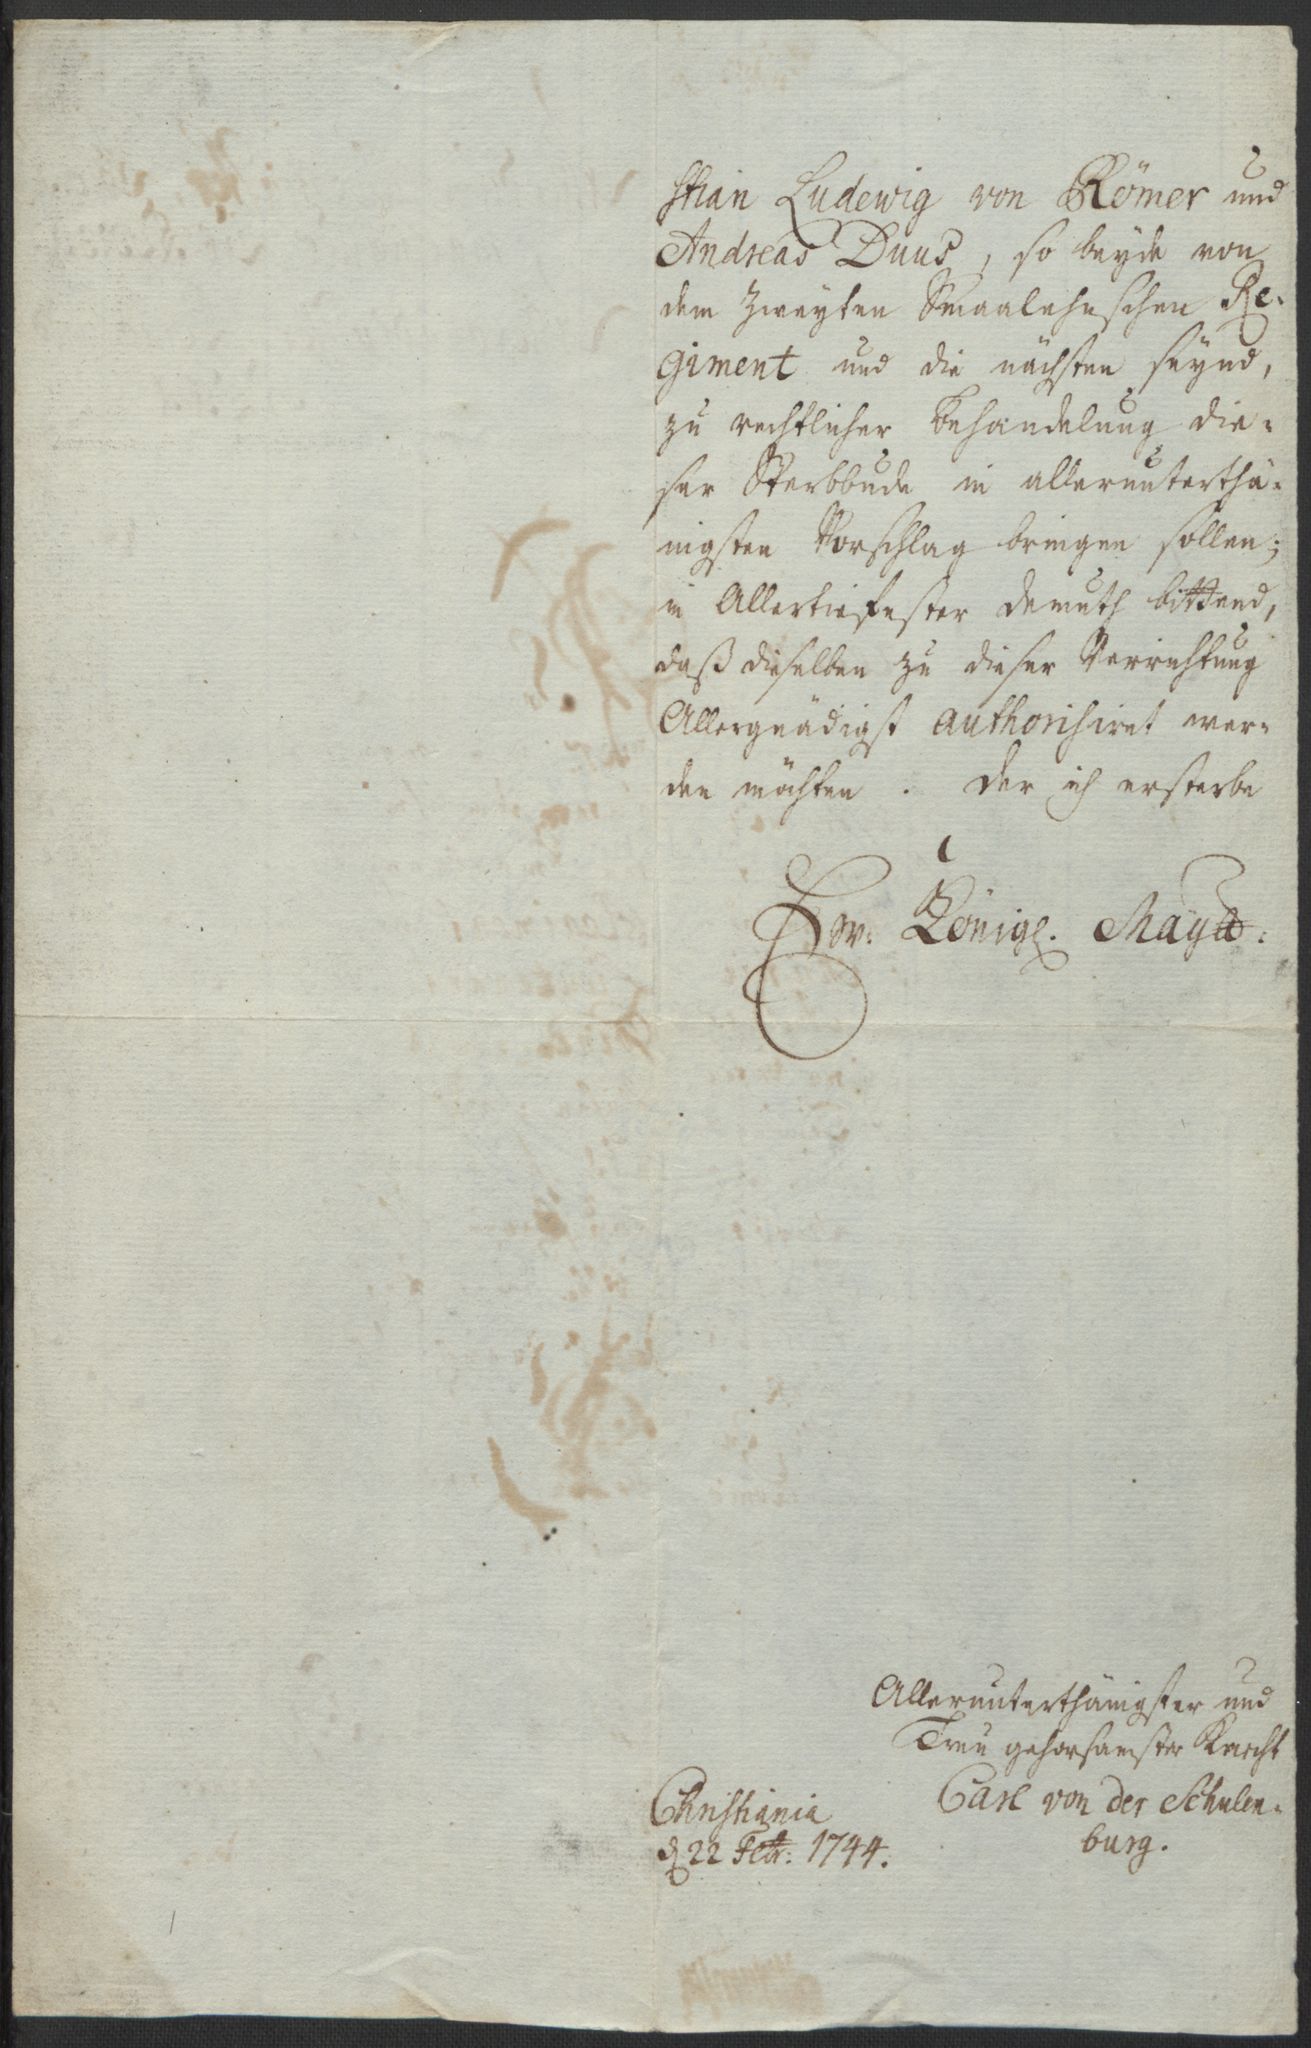 stian Ludewig von Römer und
Andreas Duus, so beyde von
dem Zweyten Smaalehnschen Re-
giment und die nächsten seynd,
zu rechtlicher Behandelung die-
ser Sterbbude in allerunterthä-
nigsten Vorschlag bringen sollen;
in Allertiefester demuth bittend,
daß dieselben zu dieser Verrichtung
Allergnädigst authorisiret wer-
den möchten. Der ich ersterbe
Ew: Königl. Maytt:
Allerunterthänigster und
Treu gehorsamster Knecht
Carl von der Schulen-
burg.
Christiania
d 22 Febr: 1744.